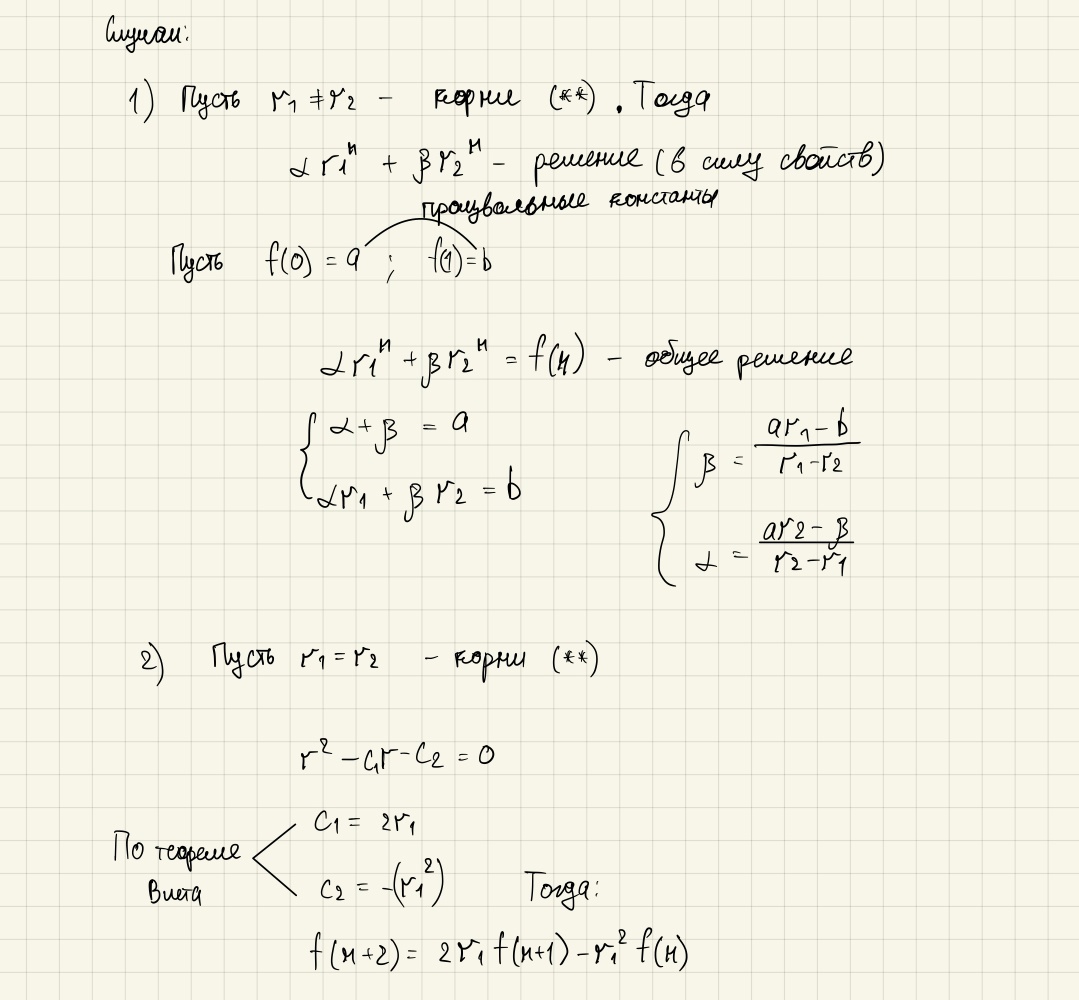 Случаи:
1) Пусть r₁ ≠ r₂ – корни (**). Тогда
αr₁ⁿ + βr₂ⁿ – решение (в силу свойств)
произвольные константы
Пусть f(0) = a ; f(1) = b
αr₁ⁿ + βr₂ⁿ = f(n) – общее решение
α + β = a
αr₁ + βr₂ = b
β = (ar₁ – b) / (r₁ – r₂)
α = (ar₂ – β) / (r₂ – r₁)
2) Пусть r₁ = r₂ – корни (**)
r² – c₁r – c₂ = 0
По теореме
Виета
c₁ = 2r₁
c₂ = –(r₁²) Тогда:
f(n+2) = 2r₁f(n+1) – r₁²f(n)